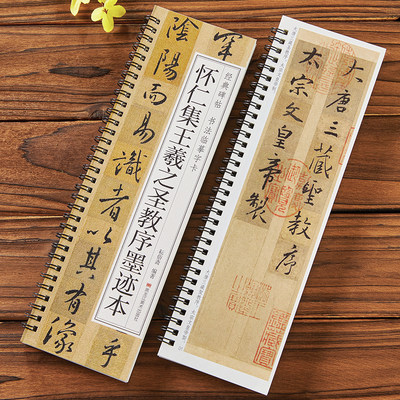 陰陽而易識者以其有像
乎
经典碑帖 书法临摹字卡
怀仁集王羲之圣教序墨迹本
编著
大唐三藏聖教序
太宗文皇帝製